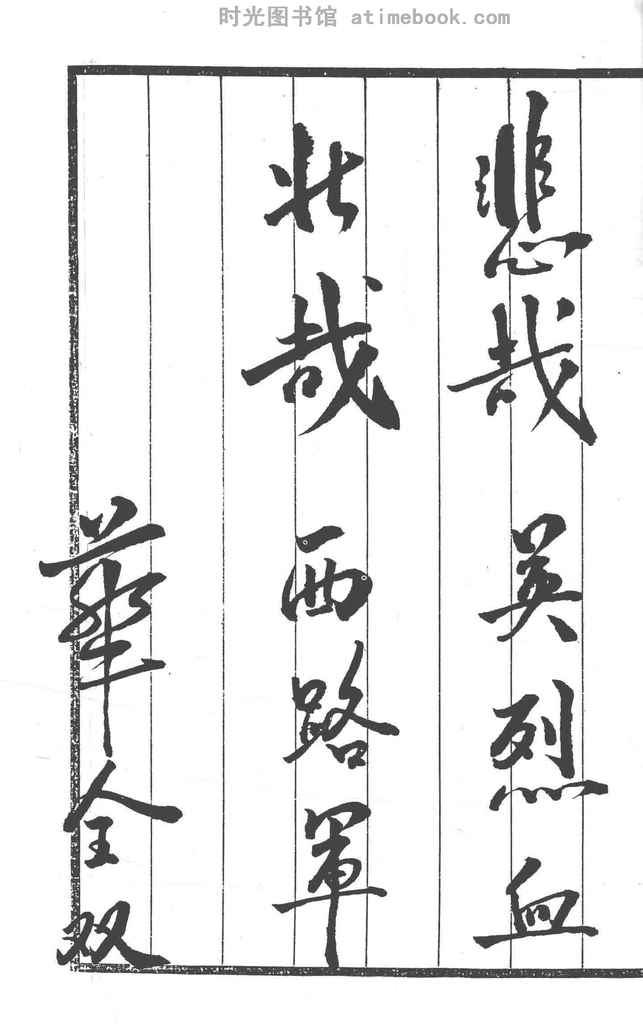 时光图书馆 atimebook.com
悲哉 英烈血
壮哉 西路军
華全双